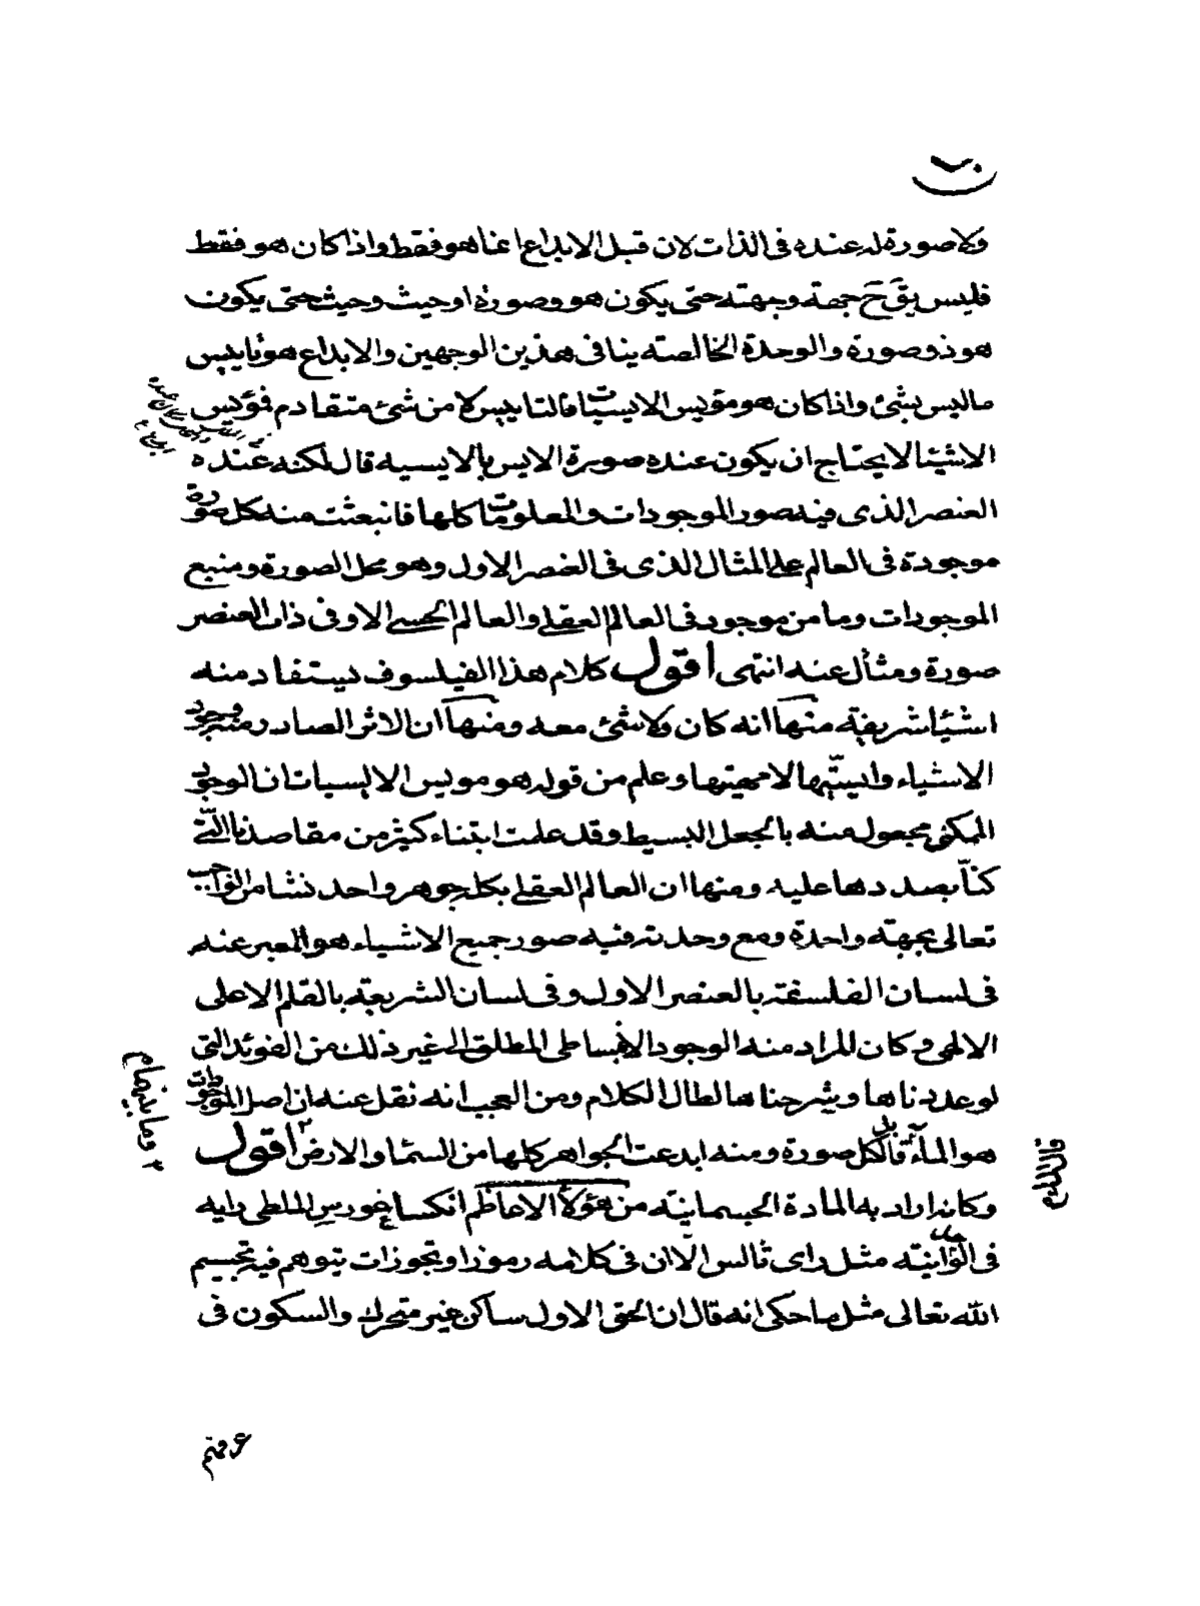 ٧٠
ولا صورة له عنده فى الذات لان قبل الابداع انما هو فقط واذا كان هو فقط
فليس يقَ حَ جهة وجهته حتى يكون هو وصورة او حيث وحيث حتى يكون
هو ذو صورة والوحدة الخالصته ينافى هذين الوجهين والابداع هو تاييس
ماليس بشئ واذا كان هو مؤيس الايسيات فالتاييس لا من شئ متقادم فمؤيس
الاشيئا لا يحتاج ان يكون عنده صورة الايس بالايسيه قال لكنه عنده
العنصر الذى فيه صور الموجودات والمعلومات كلها فانبعثت منه كل صورة
موجودة فى العالم على المثال الذى فى العنصر الاول وهو محل الصورة ومنبع
الموجودات وما من موجود فى العالم العقلى والعالم الحسى الا وفى ذات العنصر
صورة ومثال عنه انتهى اقول كلام هذا الفيلسوف يستفاد منه
اشيئا شريفته منها انه كان ولا شئ معه ومنها ان الاثر الصادر منه وجود
الاشياء وايسيّتها لا مهيتها وعلم من قوله هو مويس الايسيات ان الوجود
الممكنى مجعول منه بالجعل البسيط وقد علمت ابتناء كثير من مقاصدنا الّتى
كنّا بصددها عليه ومنها ان العالم العقلى بكله جوهر واحد نشا من الواجب
تعالى بجهته واحدة ومع وحدته فيه صور جميع الاشياء هو المعبر عنه
فى لسان الفلسفته بالعنصر الاول وفى لسان الشريعته بالقلم الاعلى
الالهى وكان المراد منه الوجود الانبساطى المطلق الى غير ذلك من الفوئد التى
لو عددناها وشرحناها لطال الكلام ومن العجب انه نقل عنه ان اصل الموجودات
هو المآء قال بل كل صورة ومنه ابدعت الجواهر كلها من السمٰا والارض ٢ اقول
وكانه اراد به المادة الجسمانيته من هؤلآء الاعاظم انكساغورس الملطى رايه
فى الوحدانيته مثل راى ثالس الّا ان فى كلامه رموزا وتجوزات يتوهم فيه تجسيم
الله تعالى مثل ما حكى انه قال ان الحق الاول ساكن غير متحرك والسكون فى
٢ وما بينهما م